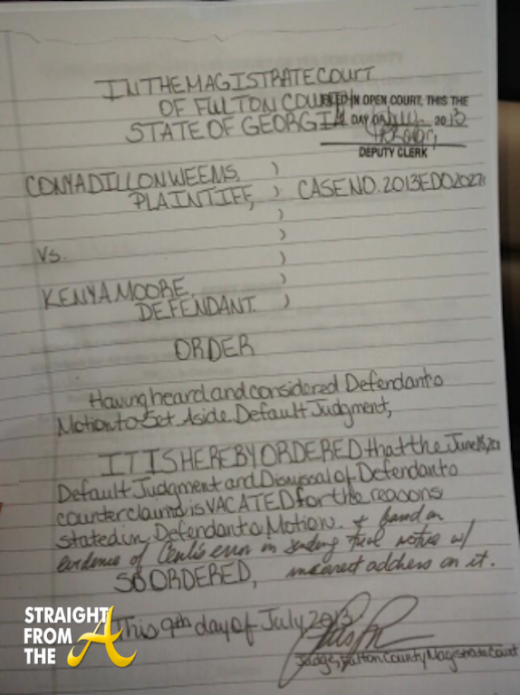 IN THE MAGISTRATE COURT
OF FULTON COUNTY
STATE OF GEORGIA
FILED IN OPEN COURT, THIS THE
DAY OF 2013
DEPUTY CLERK
CONYA DILLON WEEMS,
PLAINTIFF,
CASE NO. 2013ED
vs.
KENYA MOORE,
DEFENDANT.
ORDER
Having heard and considered Defendant's
Motion to Set Aside Default Judgment,
IT IS HEREBY ORDERED that the June
Default Judgment and Dismissal of Defendant's
counterclaim is VACATED for the reasons
stated in Defendant's Motion. + based on
evidence of error in sending trial notice w/
incorrect address on it.
SO ORDERED,
This 9th day of July 2013
Judge, Fulton County Magistrate Court
STRAIGHT
FROM
THE A